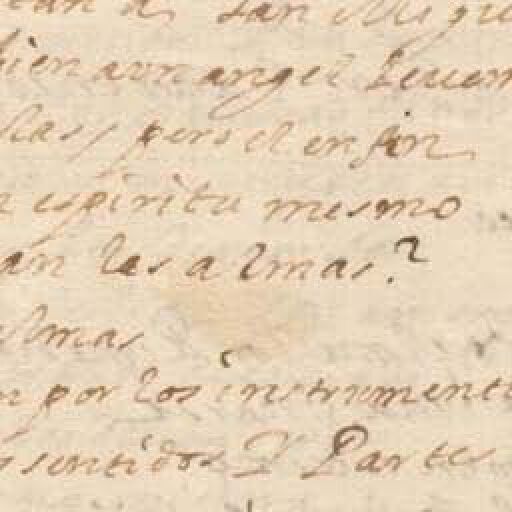 San Migue
bien a un angel
pero el en fin
espiritu mesmo
an las almas?
almas
por los instrumento
sentidos Y Partes